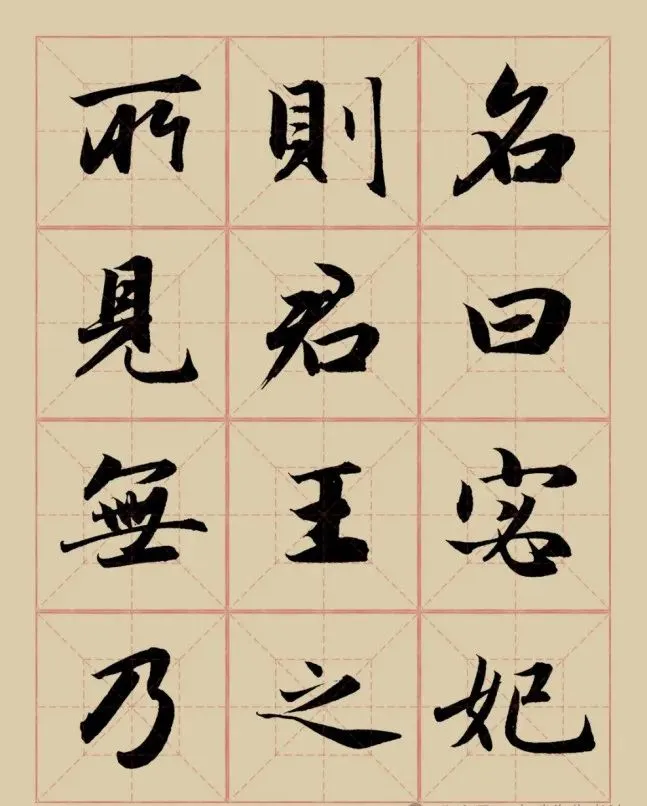 名曰宓妃
則君王之
所見無乃